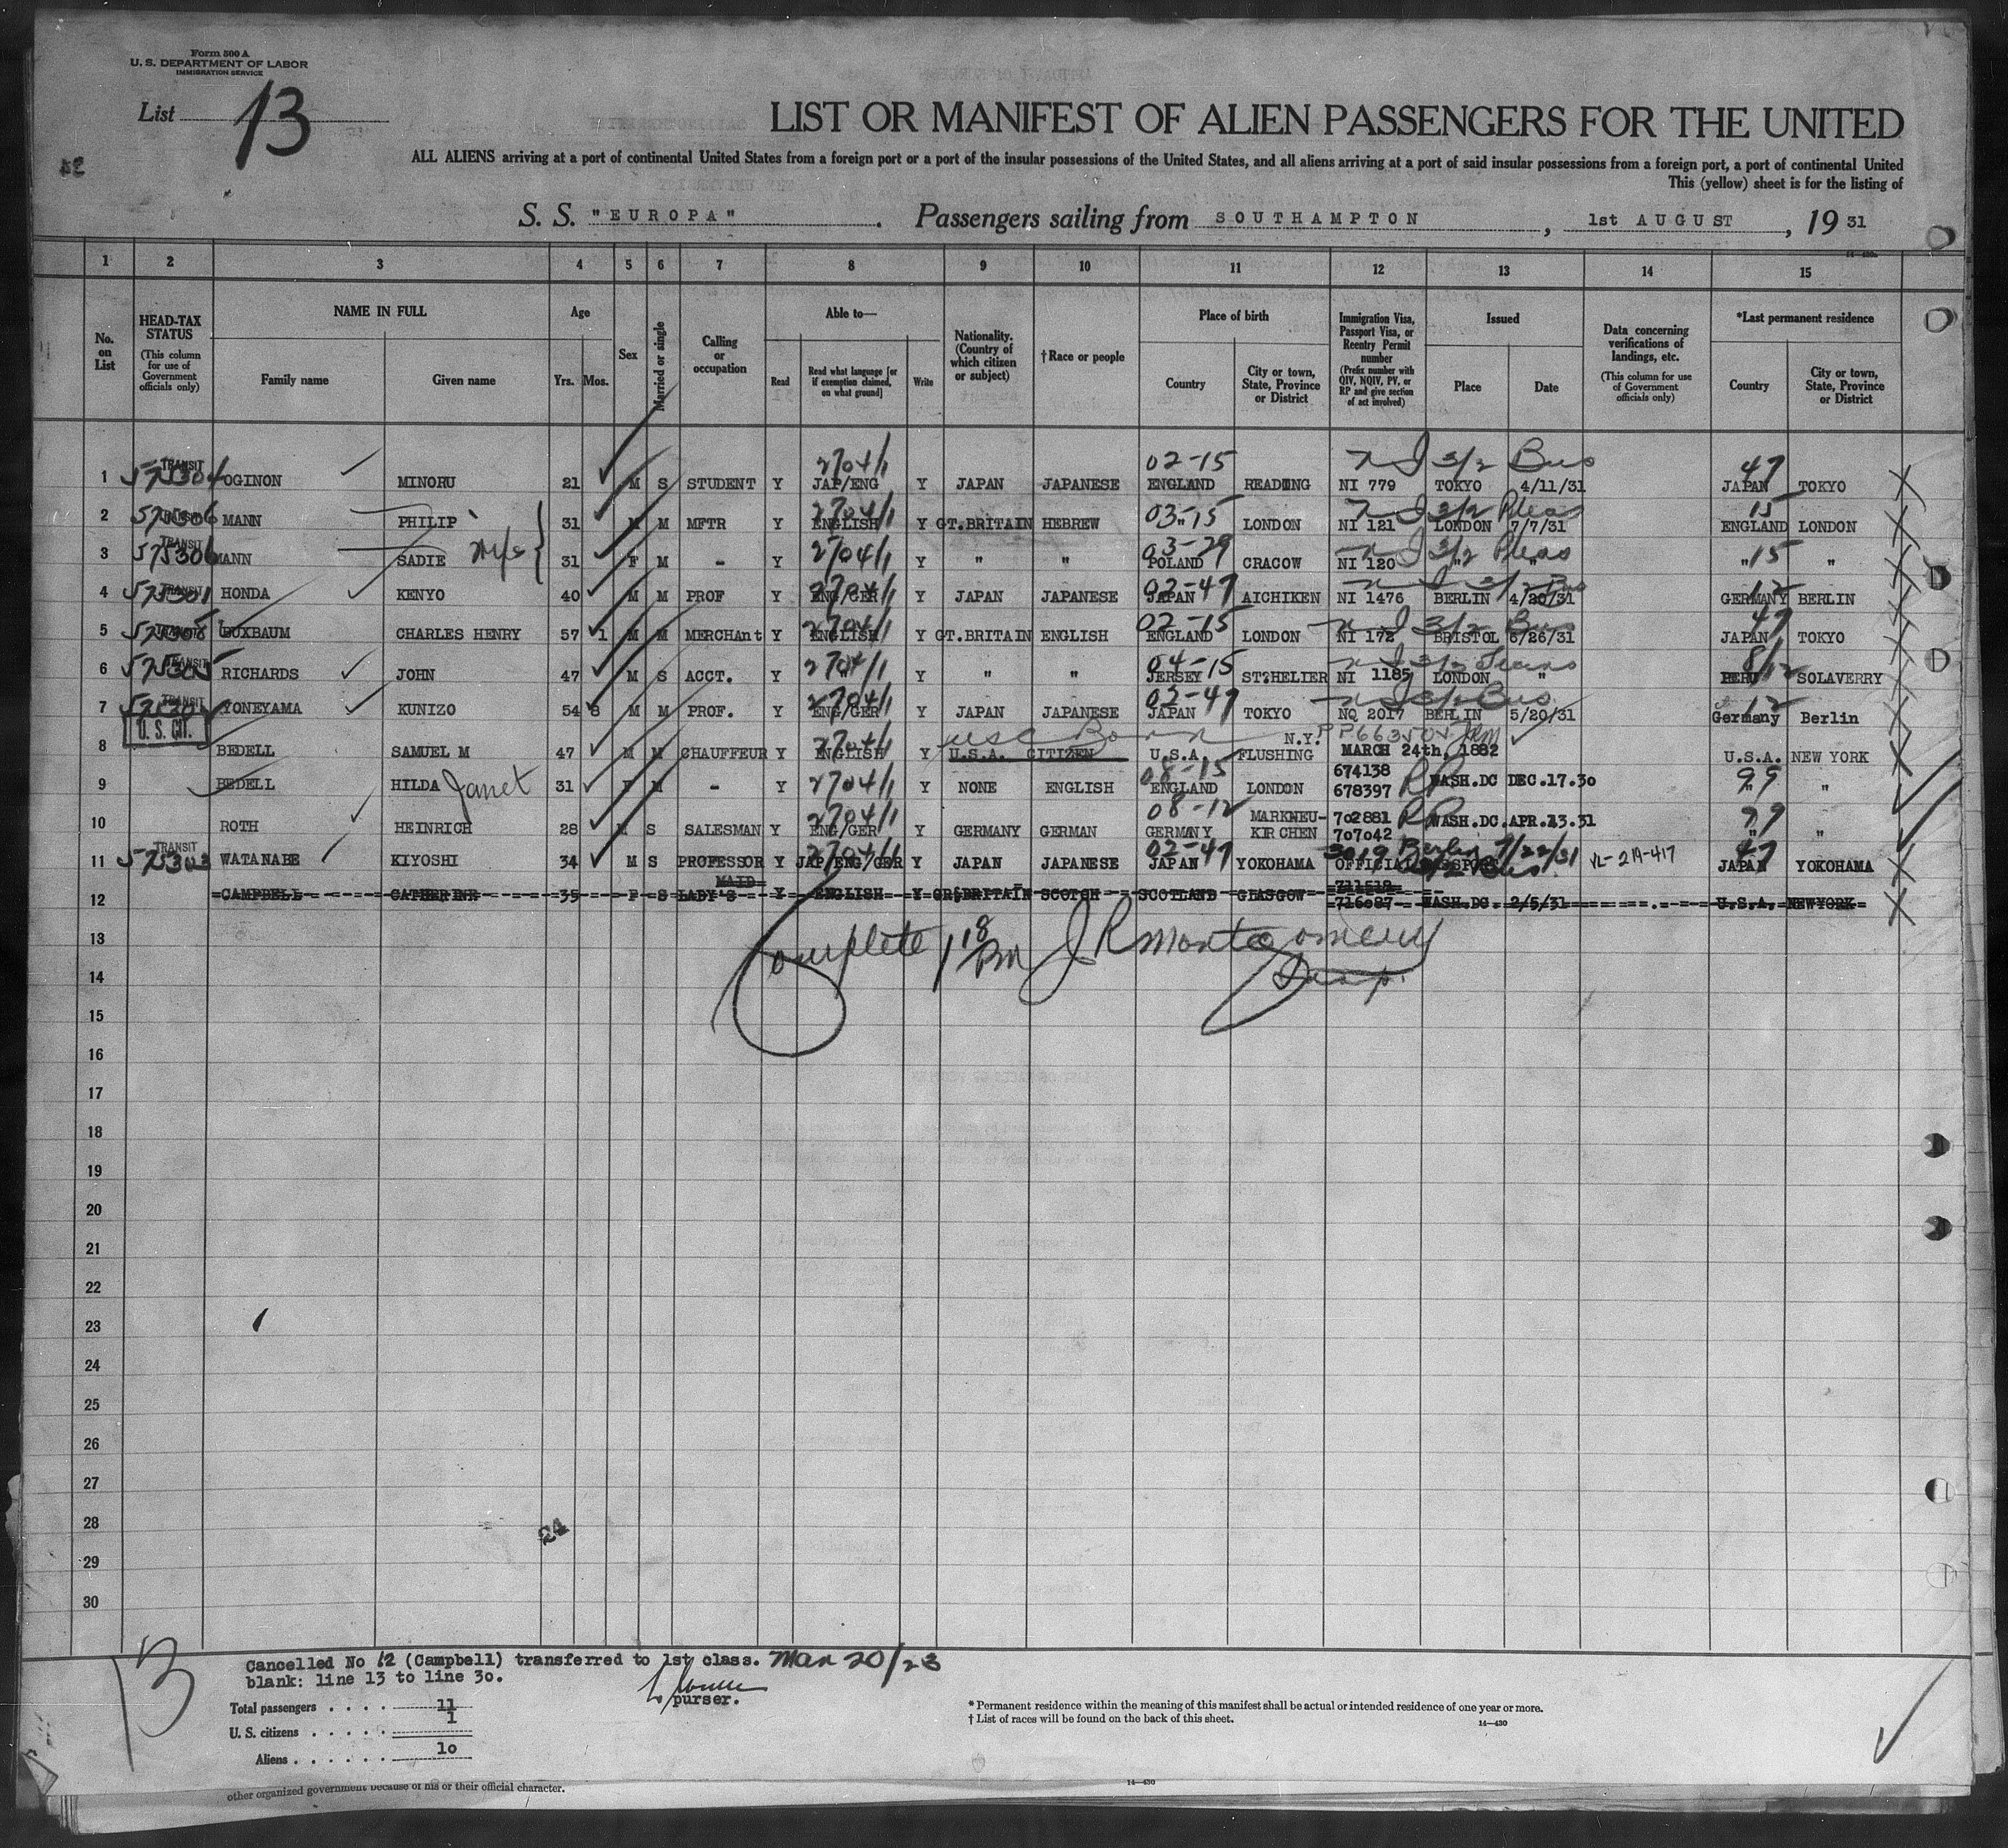 Form 500 A
U. S. DEPARTMENT OF LABOR
IMMIGRATION SERVICE
List 13
LIST OR MANIFEST OF ALIEN PASSENGERS FOR THE UNITED
ALL ALIENS arriving at a port of continental United States from a foreign port or a port of the insular possessions of the United States, and all aliens arriving at a port of said insular possessions from a foreign port, a port of continental United
This (yellow) sheet is for the listing of
S. S. "EUROPA" . Passengers sailing from SOUTHAMPTON , 1st AUGUST , 19 31
1 2 3 4 5 6 7 8 9 10 11 12 13 14 15
No. on List
HEAD-TAX STATUS (This column for use of Government officials only)
NAME IN FULL Family name Given name
Age Yrs. Mos.
Sex
Married or single
Calling or occupation
Able to— Read Read what language [or if exemption claimed, on what ground] Write
Nationality. (Country of which citizen or subject)
† Race or people
Place of birth Country City or town, State, Province or District
Immigration Visa, Passport Visa, or Reentry Permit number (Prefix number with QIV, NQIV, PV, or RP and give section of act involved)
Issued Place Date
Data concerning verifications of landings, etc. (This column for use of Government officials only)
*Last permanent residence Country City or town, State, Province or District
2704/1 02-15 3/2 Bus 47
1 575304 TRANSIT OGINON MINORU 21 M S STUDENT Y JAP/ENG Y JAPAN JAPANESE ENGLAND READING NI 779 TOKYO 4/11/31 JAPAN TOKYO
2704/1 03-15 3/2 Pleas 15
2 575306 TRANSIT MANN PHILIP 31 M M MFTR Y ENGLISH Y GT.BRITAIN HEBREW " LONDON NI 121 LONDON 7/7/31 ENGLAND LONDON
2704/1 03-29 3/2 Pleas
3 575306 TRANSIT MANN SADIE wife 31 F M - Y Y " " POLAND CRACOW NI 120 " " " 15 "
2704/1 02-47 3/2 Bus 12
4 575301 TRANSIT HONDA KENYO 40 M M PROF Y ENG/GER Y JAPAN JAPANESE JAPAN AICHIKEN NI 1476 BERLIN 4/20/31 GERMANY BERLIN
2704/1 02-15 3/2 Bus 47
5 TRANSIT BUXBAUM CHARLES HENRY 57 1 M M MERCHAnt Y ENGLISH Y GT.BRITAIN ENGLISH ENGLAND LONDON NI 172 BRISTOL 6/26/31 JAPAN TOKYO
2704/1 04-15 3/2 Trans
6 575305 TRANSIT RICHARDS JOHN 47 M S ACCT. Y " Y " " JERSEY ST?HELIER NI 1185 LONDON " PERU SOLAVERRY
2704/1 02-47 3/2 Bus 12
7 TRANSIT YONEYAMA KUNIZO 54 8 M M PROF. Y ENG/GER Y JAPAN JAPANESE JAPAN TOKYO NQ 2017 BERLIN 5/20/31 Germany Berlin
U. S. CIT. 2704/1 USC Born N.Y. PP663505
8 BEDELL SAMUEL M 47 M M CHAUFFEUR Y ENGLISH Y U.S.A. CITIZEN U.S.A. FLUSHING MARCH 24th, 1882 U.S.A. NEW YORK
08-15 674138 99
9 BEDELL HILDA Janet 31 F M - Y 2704/1 Y NONE ENGLISH ENGLAND LONDON 678397 RP WASH.DC DEC.17.30 " "
2704/1 08-12 MARKNEU- 702881 RP 99
10 ROTH HEINRICH 28 M S SALESMAN Y ENG/GER Y GERMANY GERMAN GERMANY KIRCHEN 707042 WASH.DC.APR.13.31 " "
2704/1 02-47 3019 Berlin 7/22/31 VL-219-417 47
11 575303 TRANSIT WATANABE KIYOSHI 34 M S PROFESSOR Y JAP/ENG/GER Y JAPAN JAPANESE JAPAN YOKOHAMA OFFICIAL PASSPORT JAPAN YOKOHAMA
MAID 711518
12 CAMPBELL CATHERINE 35 F S LADY'S Y ENGLISH Y GR.BRITAIN SCOTCH SCOTLAND GLASGOW 716087 WASH.DC. 2/5/31 U.S.A. NEWYORK
13
Complete 1 18 PM J R Montgomery
14 Insp.
15
16
17
18
19
20
21
22
23
24
25
26
27
28
24
29
30
13
Cancelled No 12 (Campbell) transferred to 1st class. Mar 20/23
blank: line 13 to line 30.
purser.
Total passengers . . . . 11
U. S. citizens . . . . . 1
Aliens . . . . . . 10
* Permanent residence within the meaning of this manifest shall be actual or intended residence of one year or more.
† List of races will be found on the back of this sheet. 14—430
other organized government because of his or their official character. 14—430